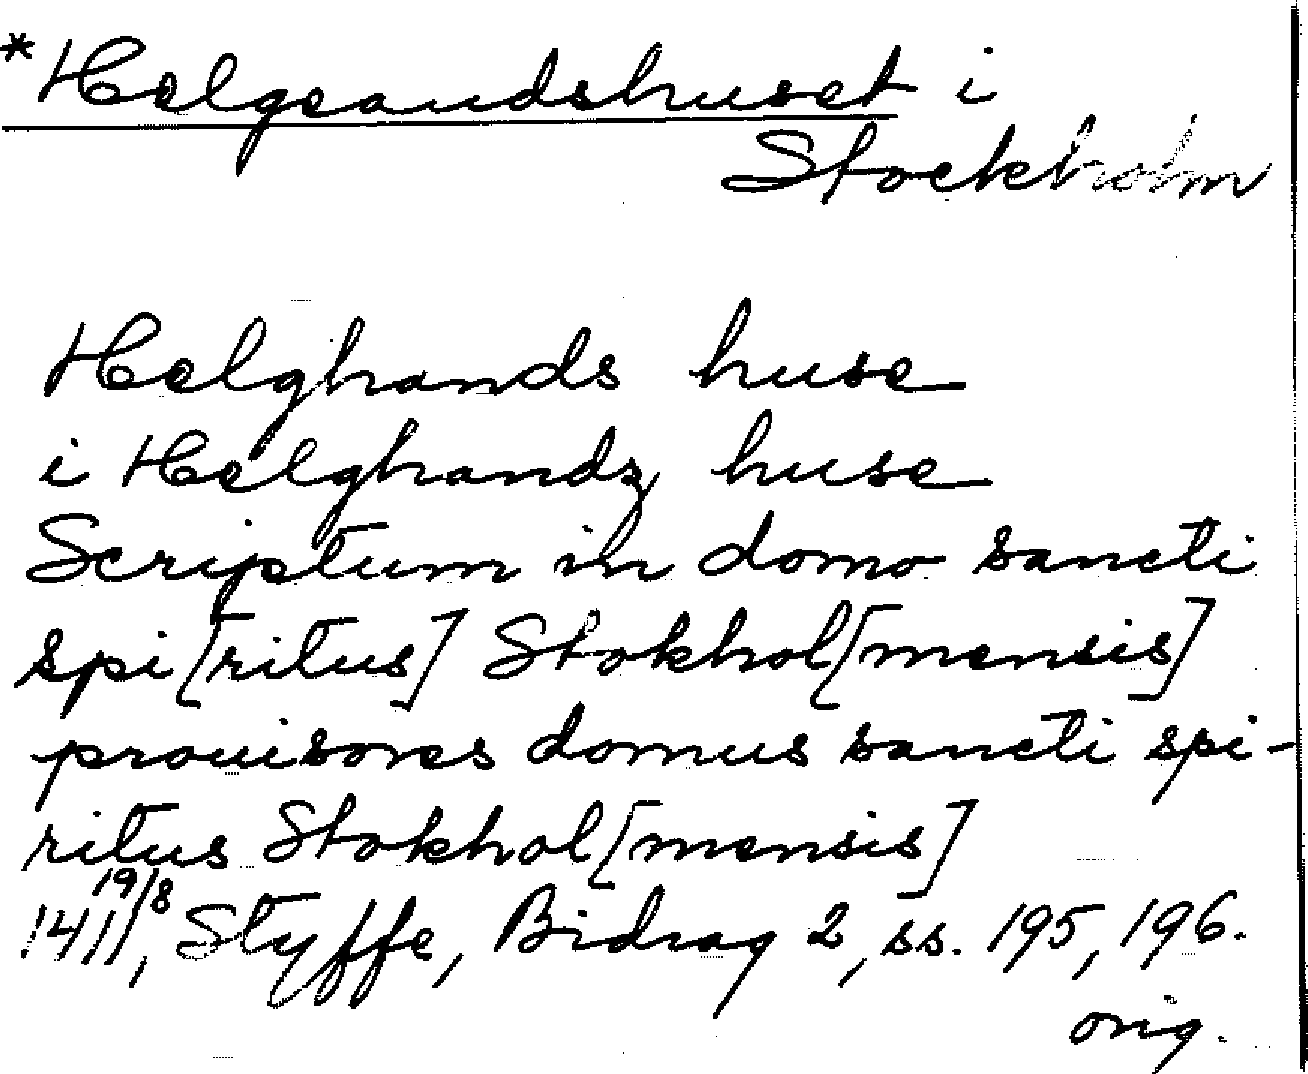 *Helgeandshuset i
Stockholm
Helghands huse
i Helghandz huse
Scriptum in domo sancti
spi[ritus] Stokhol[mensis]
prouisores domus sancti spi-
ritus Stokhol[mensis]
1411 19/8, Styffe, Bidrag 2, ss. 195, 196.
orig.